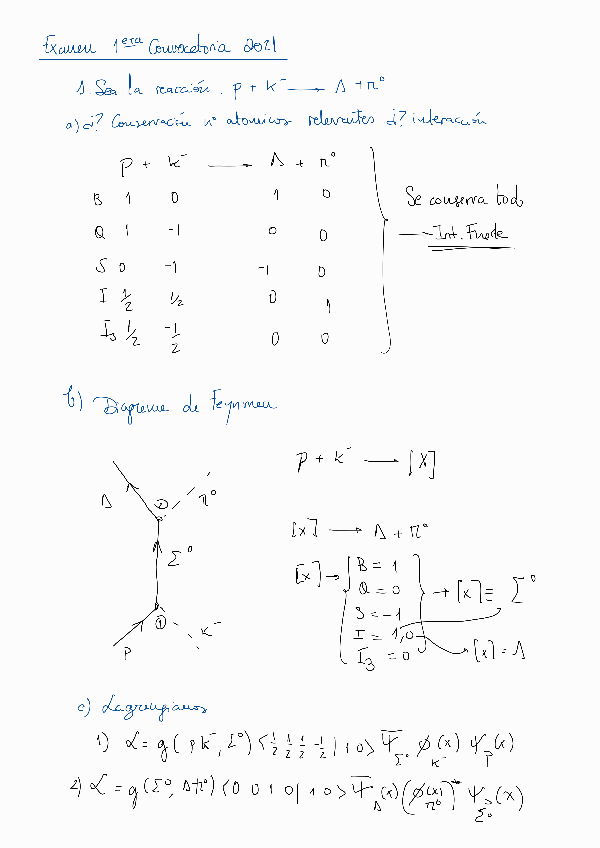 Examen 1era Convocatoria 2021
1. Sea la reacción. p + K⁻ → Λ + π⁰
a) ¿? Conservación nº atomicos relevantes ¿? interacción
p + K⁻ → Λ + π⁰
B 1 0 1 0
Q 1 -1 0 0
S 0 -1 -1 0
I 1/2 1/2 0 1
I₃ 1/2 -1/2 0 0
Se conserva todo
→ Int. Fuerte
b) Diagrama de Feynman
p + K⁻ → [X]
[x] → Λ + π⁰
[x] → { B = 1
Q = 0
S = -1
I = 1,0
I₃ = 0 } → [x] ≡ Σ⁰
→ [x] = Λ
Λ
②
π⁰
Σ⁰
①
K⁻
p
c) Lagrangianos
1) ℒ = g(pK⁻, Σ⁰) <1/2 1/2 1/2 -1/2 | 1 0> Ψ̄_Σ⁰ ϕ_K⁻(x) Ψ_p(x)
2) ℒ = g(Σ⁰, Λπ⁰) <0 0 1 0 | 1 0> Ψ̄_Λ(x) (ϕ_π⁰(x))* Ψ_Σ⁰(x)